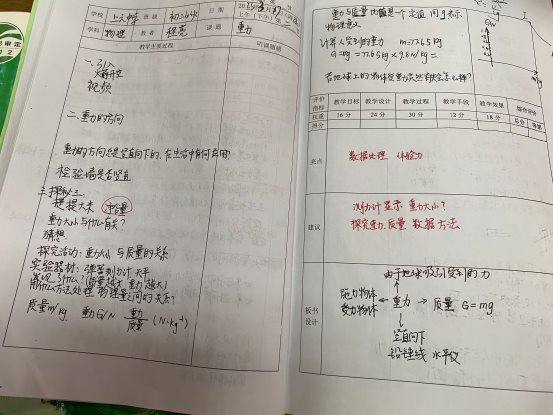 学校 上大中学 班级 初二 日期
上午(下午)
学科 物理 教者 程亮 课题 重力
教学主要过程 听课随想
一、引入
火箭升空
视频
二、重力的方向
重力的方向总是竖直向下的,在生活中有何应用?
检验墙是否竖直
三、探究三
提一提大米
重力大小与什么有关?
猜想
探究活动:重力大小与质量的关系
实验器材:弹簧测力计 天平
发现什么?(质量越大 重力越大)
用什么方法处理 物理量之间的关系?
质量m/kg 重力G/N 重力/质量 (N·kg⁻¹)
重力与质量比值是一个定值 用g表示
物理意义
计算人受到的重力 m=77.65kg
G=mg=77.65kg×9.8N/kg=
若地球上的物体没重力突然消失会怎么样?
G/N
评价指标 教学目标 教学设计 教学过程 教学手段 教学效果 综合评价
权重 16分 24分 30分 12分 18分 总分 等第
得分
亮点
数据处理 体验力
建议
测力计显示重力大小?
探究重力.质量 数据方法
板书设计
由于地球吸引受到的力
施力物体
受力物体
重力 → 质量 G=mg
竖直向下
铅锤线 水平仪